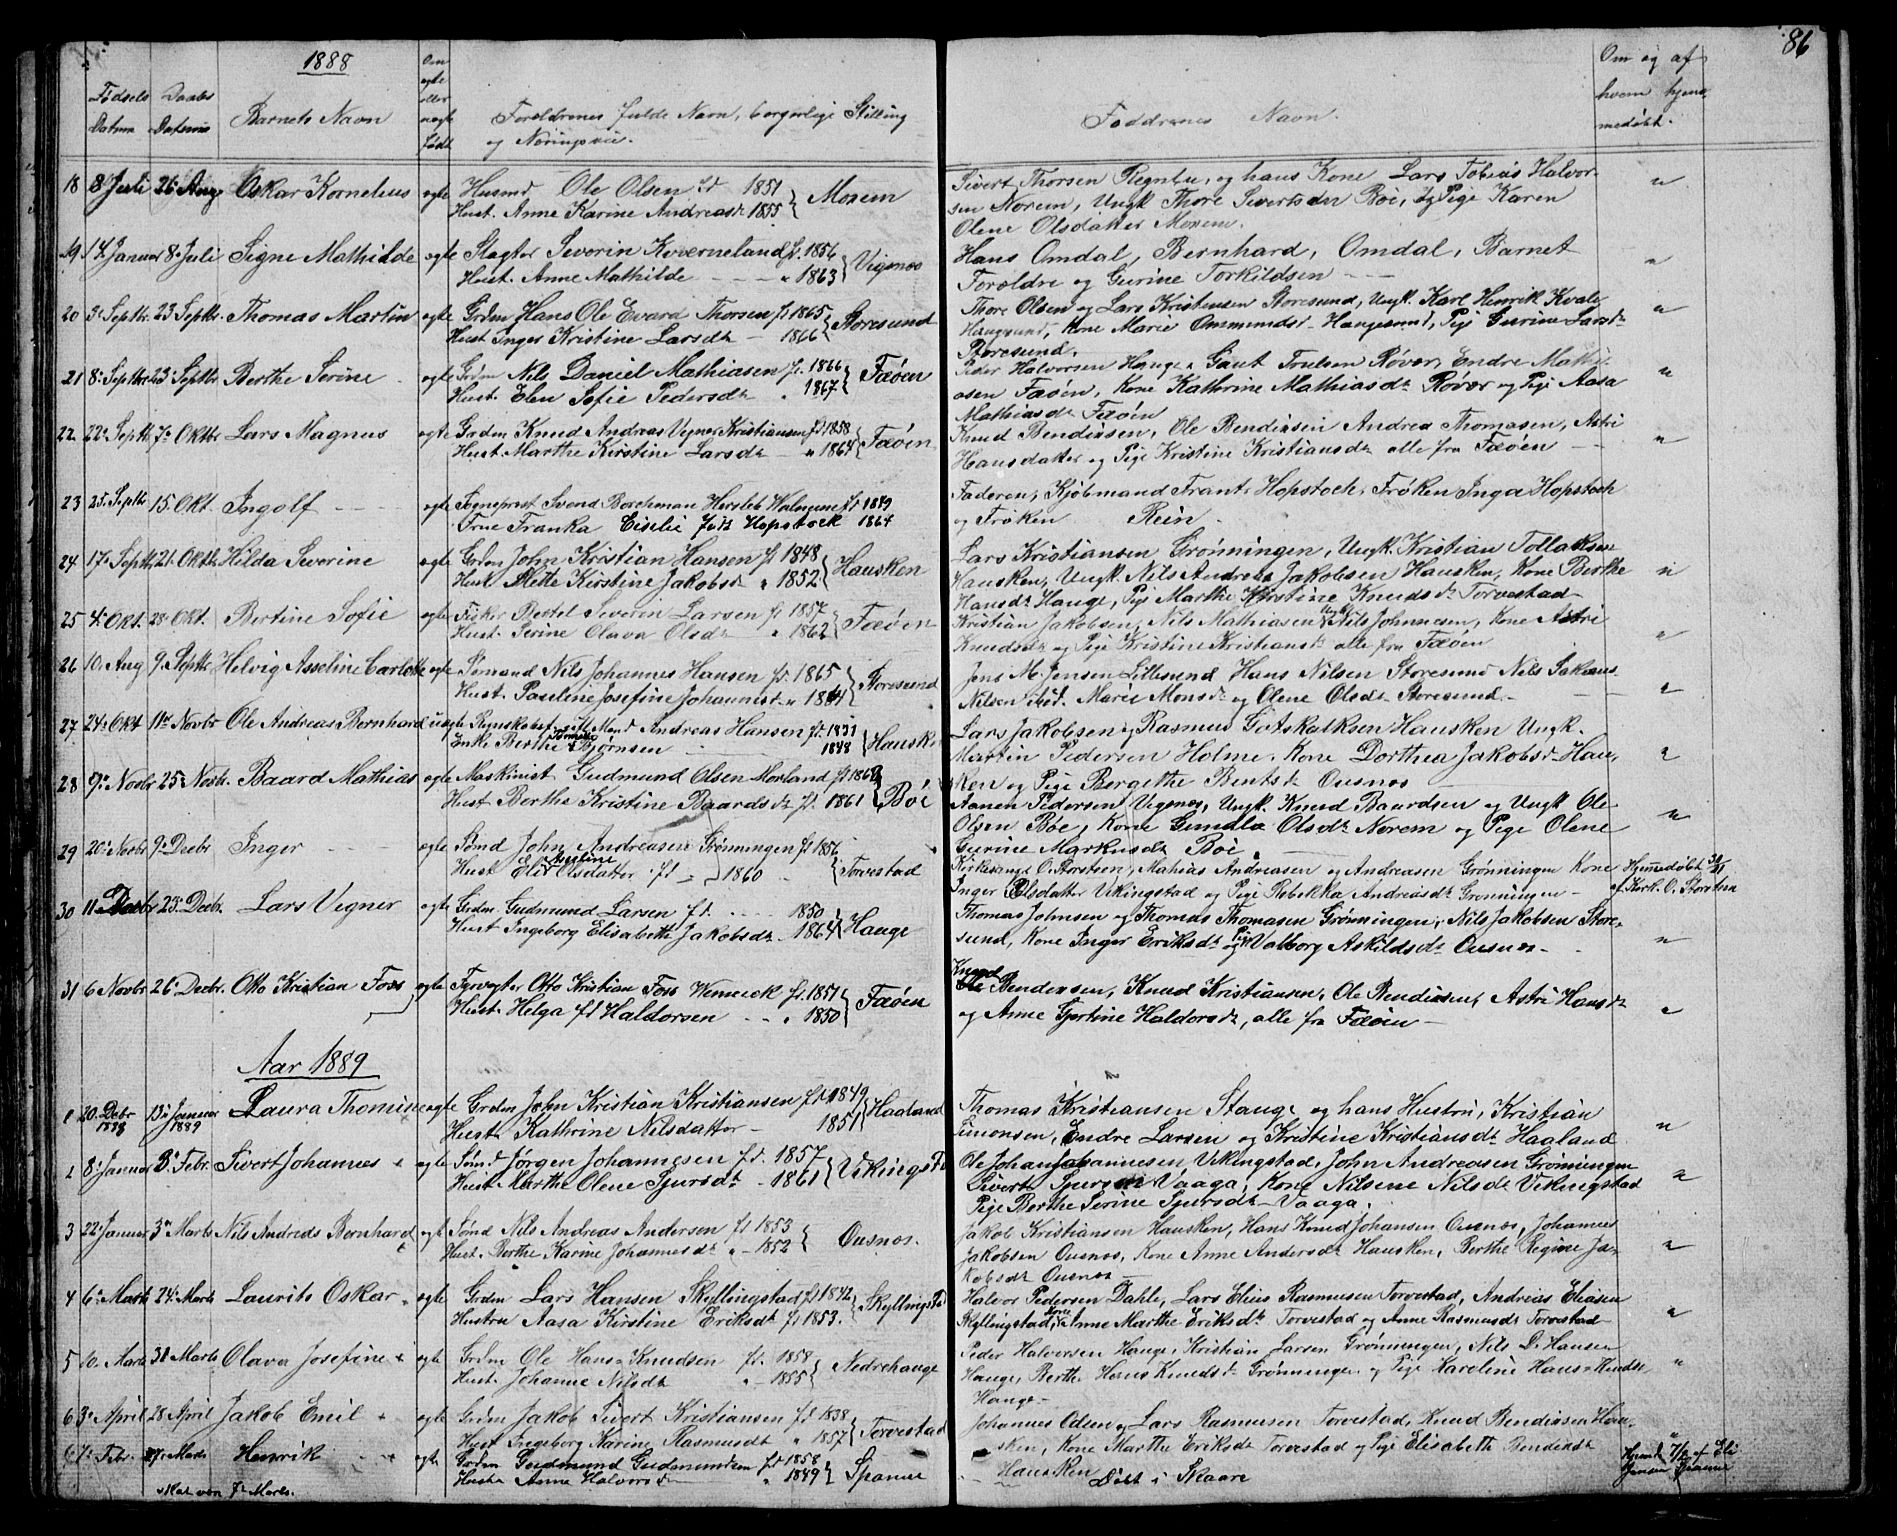 86
1888
Fødsels Datum
Daabs Datum
Barnets Navn
Om ægte eller uægte født
Forældrenes fulde Navn, borgerlige Stilling
og Næringsvei.
Faddrenes Navn.
Om og af
hvem hjem-
medøbt.
18 8 Juli 26 Aug Oskar Kornelius ægte Husmd Ole Olsen fd 1851
Hust. Anne Karine Andreasdr 1855 } Moxem
Sivert Thorsen og hans Kone Lars Tobias Halvor-
sen Norem, Ungk Thore Sivertsen Böe, og Pige Karen
Olene Olsdatter Moxem.
19 14 Januar 8. Juli Signe Mathilde ægte Slagter Severin Kverneland fd. 1856
Hust. Anne Mathilde " 1863 } Vigsnæs
Hans Omdal, Bernhard, Omdal, Barnet
Foreldre og Gurine Torkildsen
20 3. Septbr. 23 Septbr. Thomas Martin ægte Grdm Hans Ole Evard Thorsen fd 1865
Hust Inger Kristine Larsdr 1866 } Storesund
Thore Olsen og Lars Kristensen Storesund, Ungk. Karl Henrik Kvale
Haugesund, Kone Marie Ommundsdr Haugesund, Pige Gurine Larsdr
Storesund.
21 8. Septbr 23. Septbr Berthe Serine ægte Grdm Nils Daniel Mathiasen fd. 1866
Hust. Elen Sofie Pedersdr " 1867 } Fæøen
Peder Halvorsen Hauge, Gaut Trulsen Røvær, Endre Mathi-
asen Fæøen, Kone Kathrine Mathiasdr Røvær og Pige Aasa
Mathiasdr Fæøen
22. 22. Septbr 7. Oktbr Lars Magnus ægte Grdm Knud Andreas Vigner Kristiansen fd 1858
Hust Marthe Kirstine Larsdr " 1864 } Fæøen
Knud Bendixsen, Ole Bendixsen Andrea Thomasen, Astri
Hansdatter og Pige Kristine Kristiansdr alle fra Fæøen
23 25. Septbr 15. Okt. Ingolf ægte Sogneprest Svend Borchman Hersleb Walnum fd 1849
Frue Franka Eiselie født Hopstock 1864
Faderen, Kjøbmand Frantz Hopstock, Frøken Inga Hopstock
og Frøken Rein
24 17. Septbr 21. Oktbr Hilda Severine ægte Grdm John Kristian Hansen fd 1848
Hust Mette Kirstine Jakobsdr " 1852 } Hausken
Lars Kristiansen Grønningen, Ungk. Kristian Tollaksen
Hausken, Ungk. Nils Andreas Jakobsen Hausken, Kone Berthe
Hansdr Hauge, Pige Marthe Kirstine Knudsdr Torvestad
25 4. Okt. 28. Okt. Bertine Sofie ægte Fisker Bertel Severin Larsen fd 1857
Hust. Serine Olava Olsdr " 1862 } Fæøen
Kristian Jakobsen, Nils Mathiasen Ungk Nils Johnnesen, Kone Astri
Knudsdr og Pige Kristine Kristiansdr alle fra Fæøen
26 10. Aug 9. Septbr Helvig Asseline Carlotte ægte Sømand Nils Johannes Hansen fd. 1865
Hust. Pauline Josefine Johannesdr " 1864 } Storesund
Jens M. Jensen Lillesund Hans Nilsen Storesund Nils Sakrias
Nilsen ibid. Marie Monsdr og Olene Olsdr Storesund
27 24. Okt 11. Novbr Ole Andreas Bernhard uægte Andreas Hansen fd. 1851
Enke Berthe Tomine Bjørnsen 1848 } Hausken
Lars Jakobsen og Rasmus Gotskalksen Hausken Ungk.
Martin Pedersen Holme. Kone Dorthea Jakobsdr Haus-
ken og Pige Bergithe Bentsdr Ousnes
28 9. Novbr 25 Novbr. Baard Mathias ægte Maskinist Gudmund Olsen Morland fd 1862
Hust. Berthe Kristine Baardsdr fd. 1861 } Böe
Aanen Pedersen Vigsnæs, Ungk. Knud Baardsen og Ungk Ole
Olsen Böe, Kone Gundla Olsdr Norem og Pige Olene
Gurine Markusdr Böe.
29 20. Novbr 9. Decbr Inger ægte Sømd John Andreasen Grønningen fd 1856
Hust Elis Aseline Olsdatter fd 1860 } Torvestad
Kirkesang. O. Storsteen, Mathias Andreasen og Andreasen Grønningen Kone
Inger Olsdatter Vikingstad og Pige Rebekka Andreasdr Grønningen
Hjemmedøbt 30/11
af Kirk. O. Storsteen
30 11 Decbr 23. Decbr. Lars Vigner ægte Grdm Gudmund Larsen fd. 1850
Hust Ingeborg Elisabeth Jakobsdr 1864 } Hauge
Thomas Johnsen og Thomas Thomasen Grønningen, Nils Jakobsen Store-
sund, Kone Inger Eriksdr Pige Valborg Askildsdr Ousnes
31 6 Novbr 26. Decbr. Otto Kristian Foss ægte Fyrvogter Otto Kristian Foss Wenneck fd. 1851
Hust. Helga fd Haldorsen " 1850 } Fæøen
Knud Bendixsen, Knud Kristiansen, Ole Bendixsen, Astri Hansdr
og Anne Gjertine Haldorsdr, alle fra Fæøen
Aar 1889
1 20. Decbr 1888 13. Januar 1889 Laura Thomine ægte Grdm John Kristian Kristiansen fd 1849
Hust. Kathrine Nilsdatter 1851 } Haaland
Thomas Kristiansen Stange og hans Hustru, Kristian
Simonsen, Endre Larsen og Kristine Kristiansdr Haaland
2 8. Januar 3. Febr. Sivert Johannes ægte Sømd Jørgen Johannesen fd. 1857
Hust. Marthe Olene Sjursdr 1861 } Vikingstad
Ole Johan Johannesen Vikingstad, John Andreasen Grønningen
Sivert Sjursen Vaaga, Kone Nilsine Nilsdr Vikingstad
Pige Berthe Serine Sjursdr Vaaga.
3 22. Januar 3. Marts Nils Andreas Bernhard ægte Sømd Nils Andreas Andersen fd 1853
Hust. Berthe Karine Johannesdr " 1852 } Ousnes.
Jakob Kristiansen Hausken, Hans Knud Johansen Ousnes, Johannes
Jakobsen Ousnes, Kone Anne Andersdr Hausken, Berthe Regine Ja-
kobsdr Ousnes
4 6. Marts 24. Marts Laurits Oskar ægte Grdm Lars Hansen Skyllingstad fd 1842
Hustru Aasa Kirstine Eriksdr fd 1853. } Skyllingstad
Halvor Pedersen Dahle, Lars Elias Rasmussen Torvestad, Andreas Eliasen
Skyllingstad, Kone Anne Marthe Eriksdr Torvestad og Anne Rasmusdr Torvestad
5 10. Marts 31 Marts Olava Josefine ægte Grdm Ole Hans Knudsen fd. 1858
Hust. Johanne Nilsdr " 1855 } Nedrehauge
Peder Halvorsen Hauge, Kristian Larsen Grønningen, Nils D. Hansen
Hauge, Berthe Hans Knudsdr Grønningen og Pige Karoline Hans Knudsdr
Hauge
6 3. April 28 April Jakob Emil ægte Grdm Jakob Sivert Kristiansen fd 1838
Hust Ingeborg Karine Rasmusdr " 1857 } Torvestad
Johannes Odsen og Lars Rasmussen Torvestad, Knud Bendixsen Hau-
sken, Kone Marthe Eriksdr Torvestad og Pige Elisabeth Bendixsdr
Hausken
6 1. Febr. Marts Henrik ægte Grdm Gudmund Gudmundsen fd. 1858
Hust. Anne Halvorsdr " 1849 } Spanne
Døbt i Skaare
Hjemd. 7/2 af Eli
Jensen Spanne